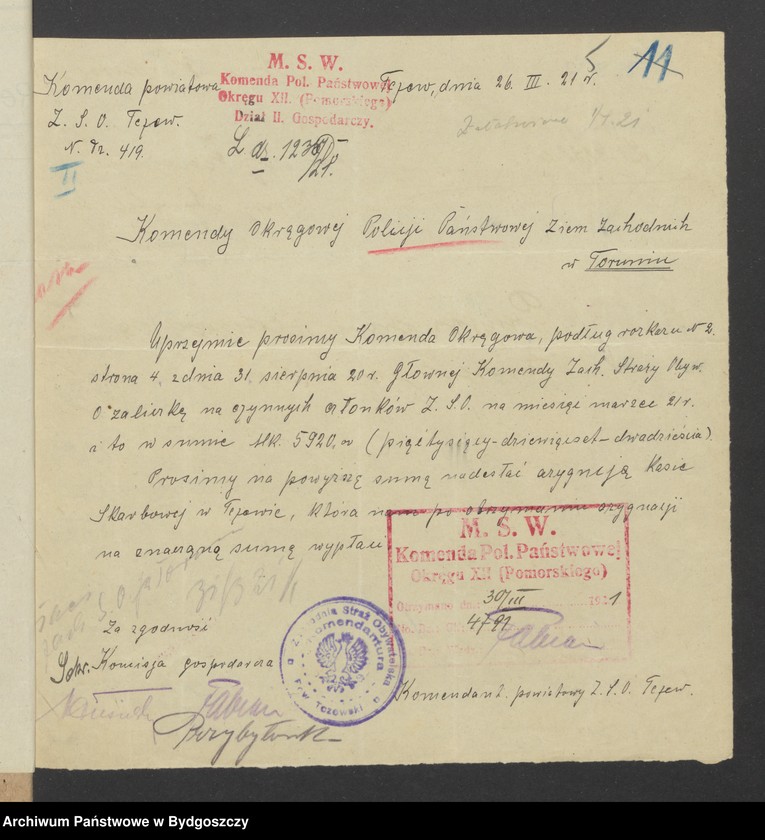 11
Komenda powiatowa
Z. S. O. Tczew.
N. dz. 419.
II
M. S. W.
Komenda Pol. Państwowej
Okręgu XII. (Pomorskiego)
Dział II. Gospodarczy.
L. dz. 1239/21.
Tczew, dnia 26. III. 21 r.
Komendy Okręgowej Policji Państwowej Ziem Zachodnich
w Toruniu
Uprzejmie prosimy Komenda Okręgowa, podług rozkazu N 2.
strona 4, z dnia 31, sierpnia 20 r. Głownej Komendy Zach. Straży Obyw.
O zaliczkę na czynnych członków Z. S. O. na miesiąc marzec 21 r.
i to w sumie Mk. 5920,00 (pięćtysięcy-dziewięćset-dwadzieścia).
Prosimy na powyższą sumę nadesłać asygnację Kasie
Skarbowej w Tczewie, która nam po otrzymaniu asygnacji
na znaczną sumę wypłaci
M. S. W.
Komenda Pol. Państwowej
Okręgu XII (Pomorskiego)
Otrzymano dnia 30/III 1921
4791
Fabian
Za zgodność
Komisja gospodarcza
Zachodnia Straż Obywatelska
Komendantura
Pow. Tczewski
Komendant powiatowy Z. S. O. Tczew.
Fabian
Archiwum Państwowe w Bydgoszczy